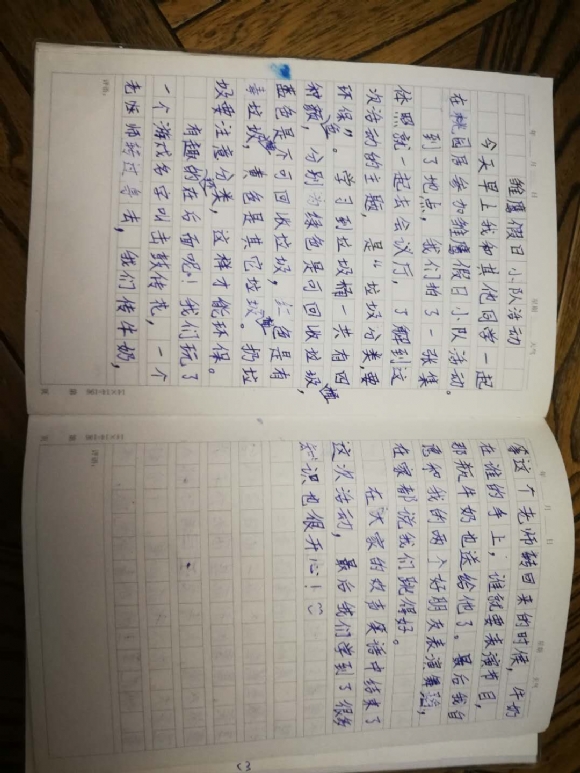 雏鹰假日小队活动
今天早上我和其他同学一起
在桃园居参加雏鹰假日小队活动。
到了地点，我们拍了一张集
体照就一起去会议厅，了解到这
次活动的主题，是“垃圾分类，要
环保”。学习到垃圾桶一共有四
种颜色，分别为绿色是可回收垃圾，
蓝色是不可回收垃圾，红色是有
毒垃圾，黄色是其它垃圾。扔垃
圾要注意分类，这样才能环保。
有趣的在后面呢！我们玩了
一个游戏名字叫击鼓传花，一个
老师转过去，我们传牛奶，
等这个老师转回来的时候，牛奶
在谁的手上，谁就要表演节目，
那瓶牛奶也送给他了。最后我自
己和我的两个好朋友表演，
大家都说我们跳得好。
在大家的欢声笑语中结束了
这次活动，最后我们学到了很多
知识也很开心！